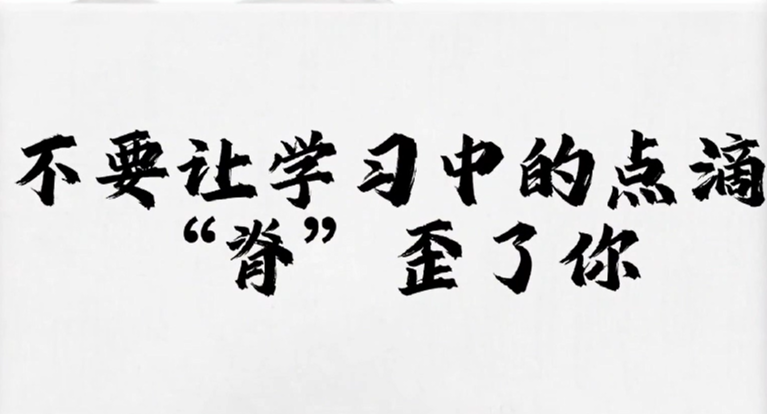 不要让学习中的点滴
“脊”歪了你